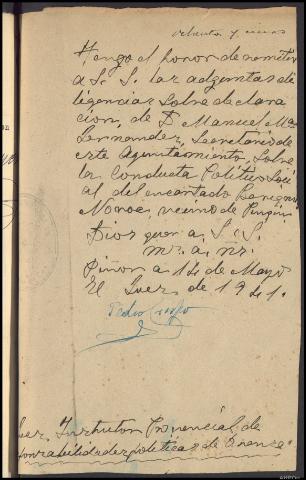 ochenta y cinco
Tengo el honor de remitir
a S. S. las adjuntas di
ligencias sobre declara
cion, de D. Manuel Mª
Fernandez, Secretario de
este Ayuntamiento, sobre
la conducta Politico Soci
al del encartado
Novoa, vecino de Piñor
Dios guar a S. S.
mº. a. ñs.
Piñor a 14 de Mayo
El Juez de 1941.
Pedro Crespo
Juez Instructor Provincial de
sponsabilidades politicas de Orense